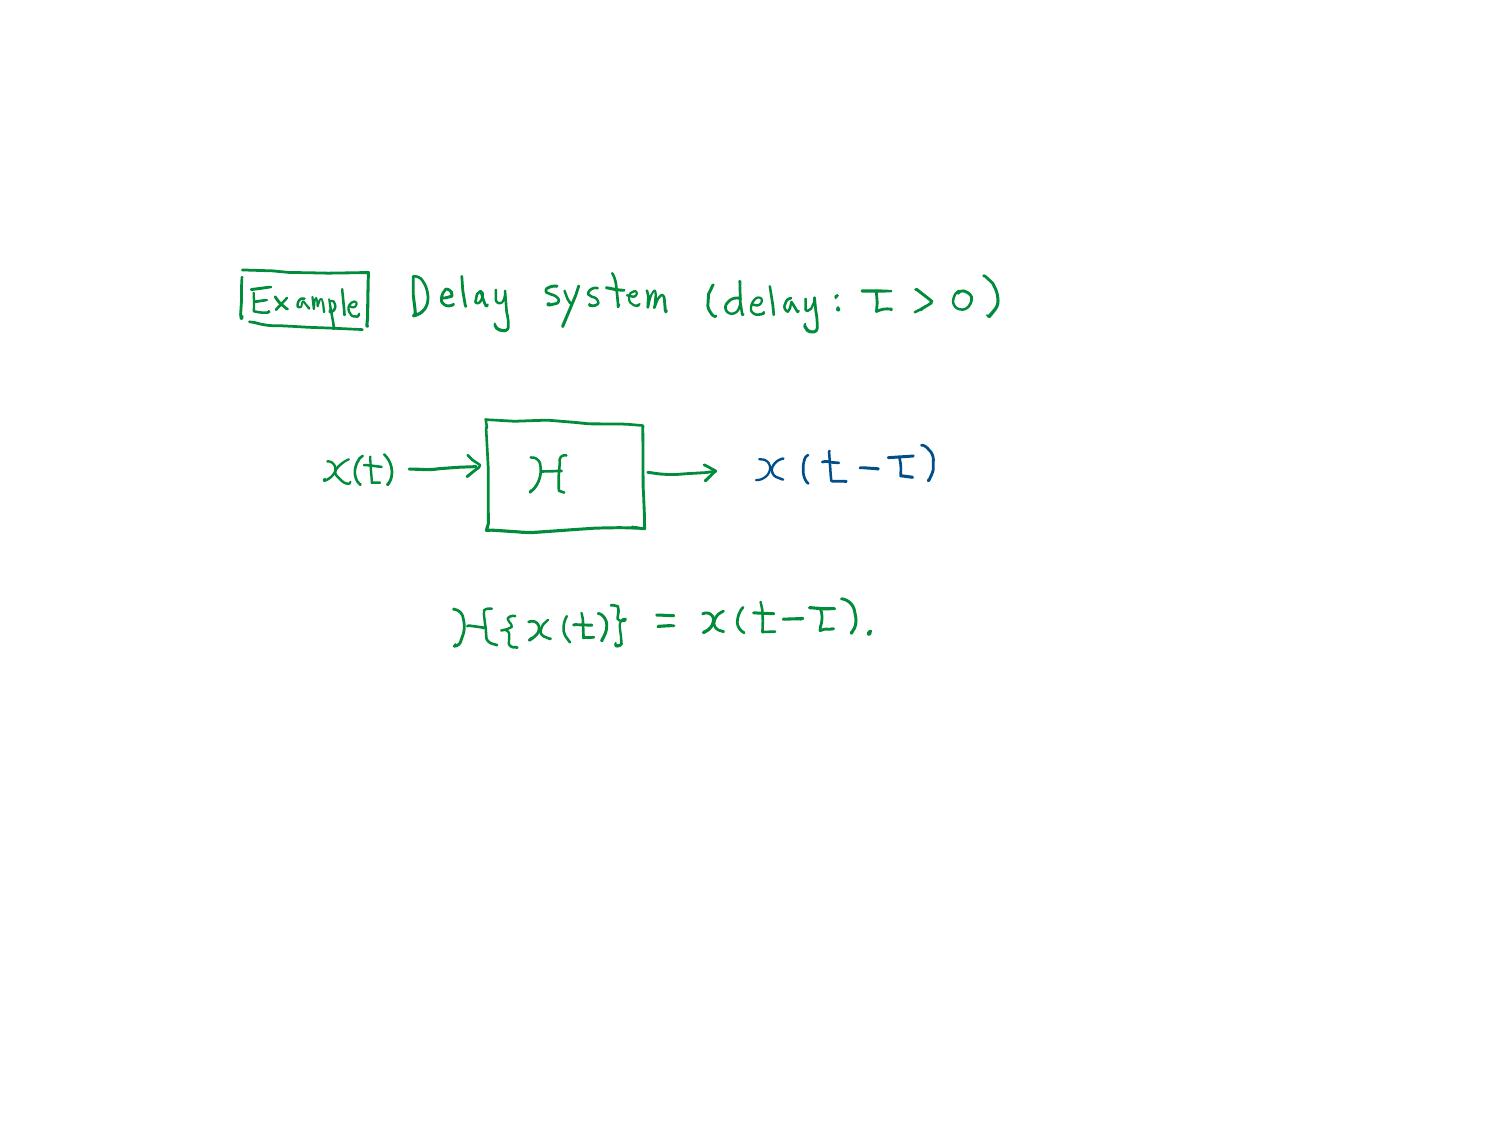 Example Delay system (delay: τ > 0)
x(t) → H → x(t-τ)
H{x(t)} = x(t-τ).